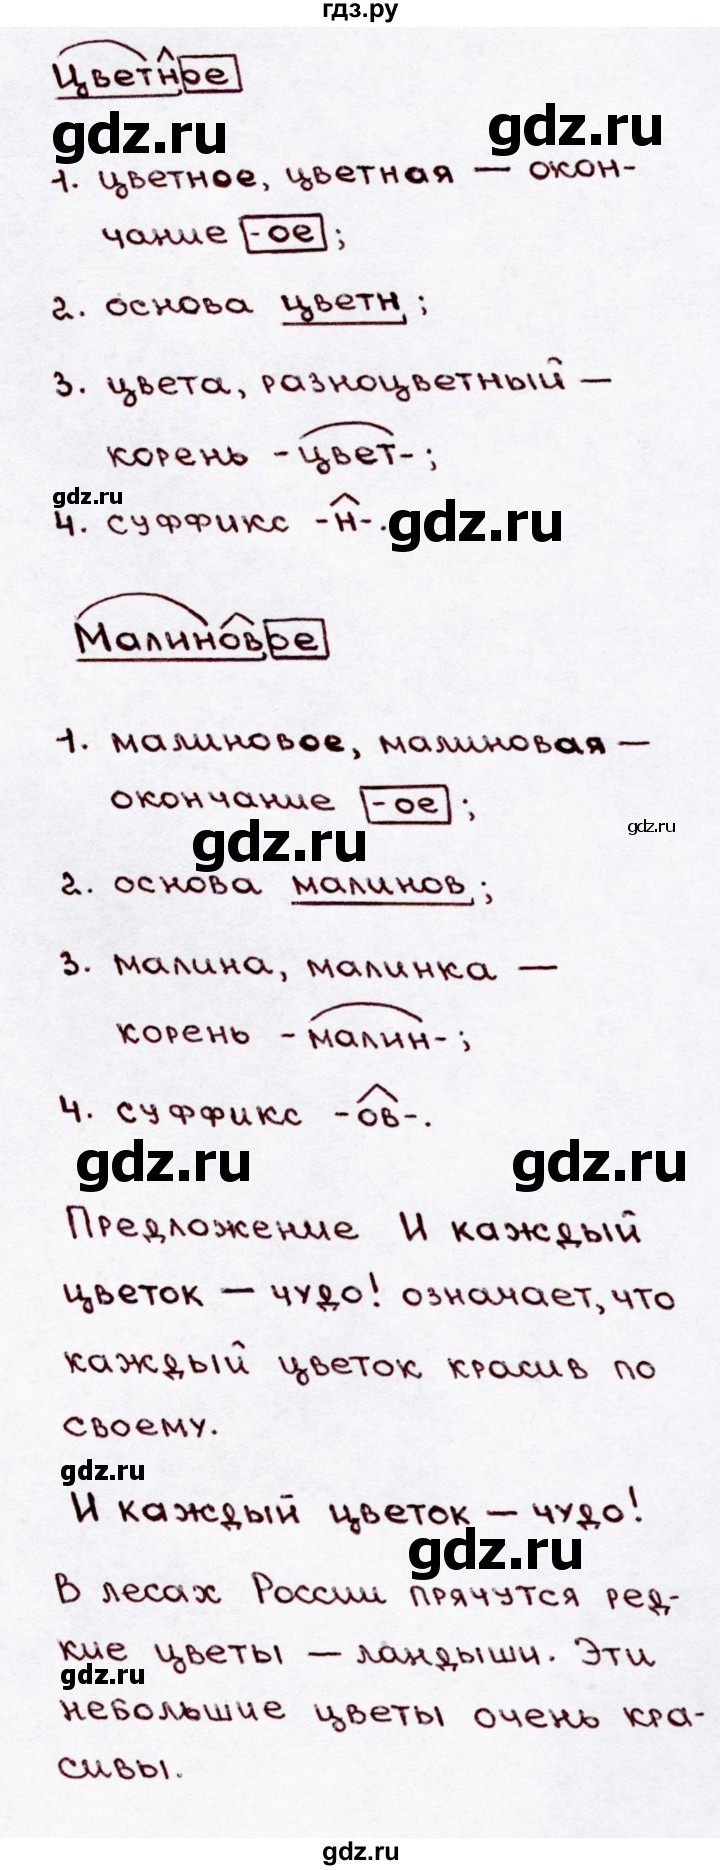 гдз.ру
Цветное
gdz.ru gdz.ru
1. цветное, цветная — окон-
чание -ое ;
2. основа цветн ;
3. цвета, разноцветный —
корень -цвет- ;
gdz.ru
4. суффикс -н-. gdz.ru
Малиновое
1. малиновое, малиновая —
окончание -ое ;
gdz.ru gdz.ru
2. основа малинов ;
3. малина, малинка —
корень -малин- ;
4. суффикс -ов-.
gdz.ru gdz.ru
Предложение И каждый
цветок — чудо! означает, что
каждый цветок красив по
своему.
gdz.ru
И каждый цветок — чудо!
gdz.ru
В лесах России прячутся ред-
кие цветы — ландыши. Эти
gdz.ru
небольшие цветы очень кра-
сивы.
gdz.ru